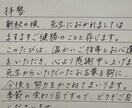 拝啓
新秋の候 先生におかれましては
ますますご健勝のことと存じます。
このたびは、温かいご指導とお心遣
をいただき、心より感謝申し上げま
先生からいただいたお言葉を胸に、
今後とも努力をかさねてまいります。
季節の変わり目ですので、どうぞ